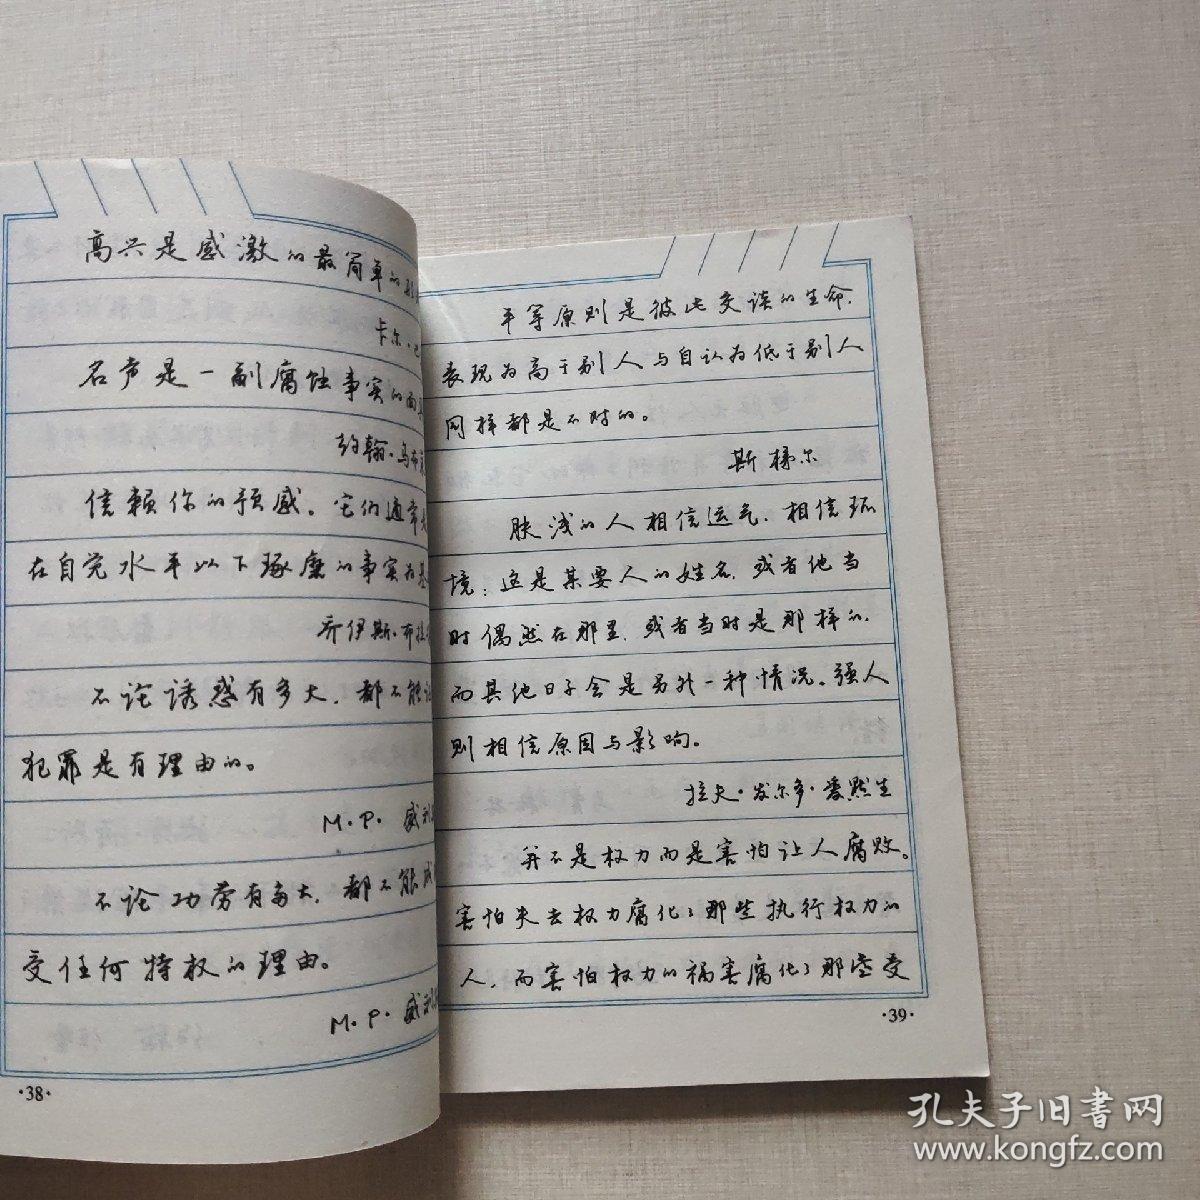 高兴是感激的最简单的
卡尔·巴
名声是一副腐蚀事实的面具
约翰·乌布
信赖你的预感。它们通常
在自觉水平以下琢磨的事实为基
乔伊斯·布拉
不论诱惑有多大，都不能
犯罪是有理由的。
M.P. 威利
不论功劳有多大，都不能成
受任何特权的理由。
M.P. 威利
·38·
平等原则是彼此交谈的生命，
表现为高于别人与自认为低于别人
同样都是不对的。
斯梯尔
肤浅的人相信运气，相信环
境：这是某要人的姓名，或者他当
时偶然在那里，或者当时是那样的，
而其他日子会是另外一种情况。强人
则相信原因与影响。
拉夫·发尔多·爱默生
并不是权力而是害怕让人腐败。
害怕失去权力腐化了那些执行权力的
人，而害怕权力的祸害腐化了那些受
·39·
孔夫子旧书网
www.kongfz.com